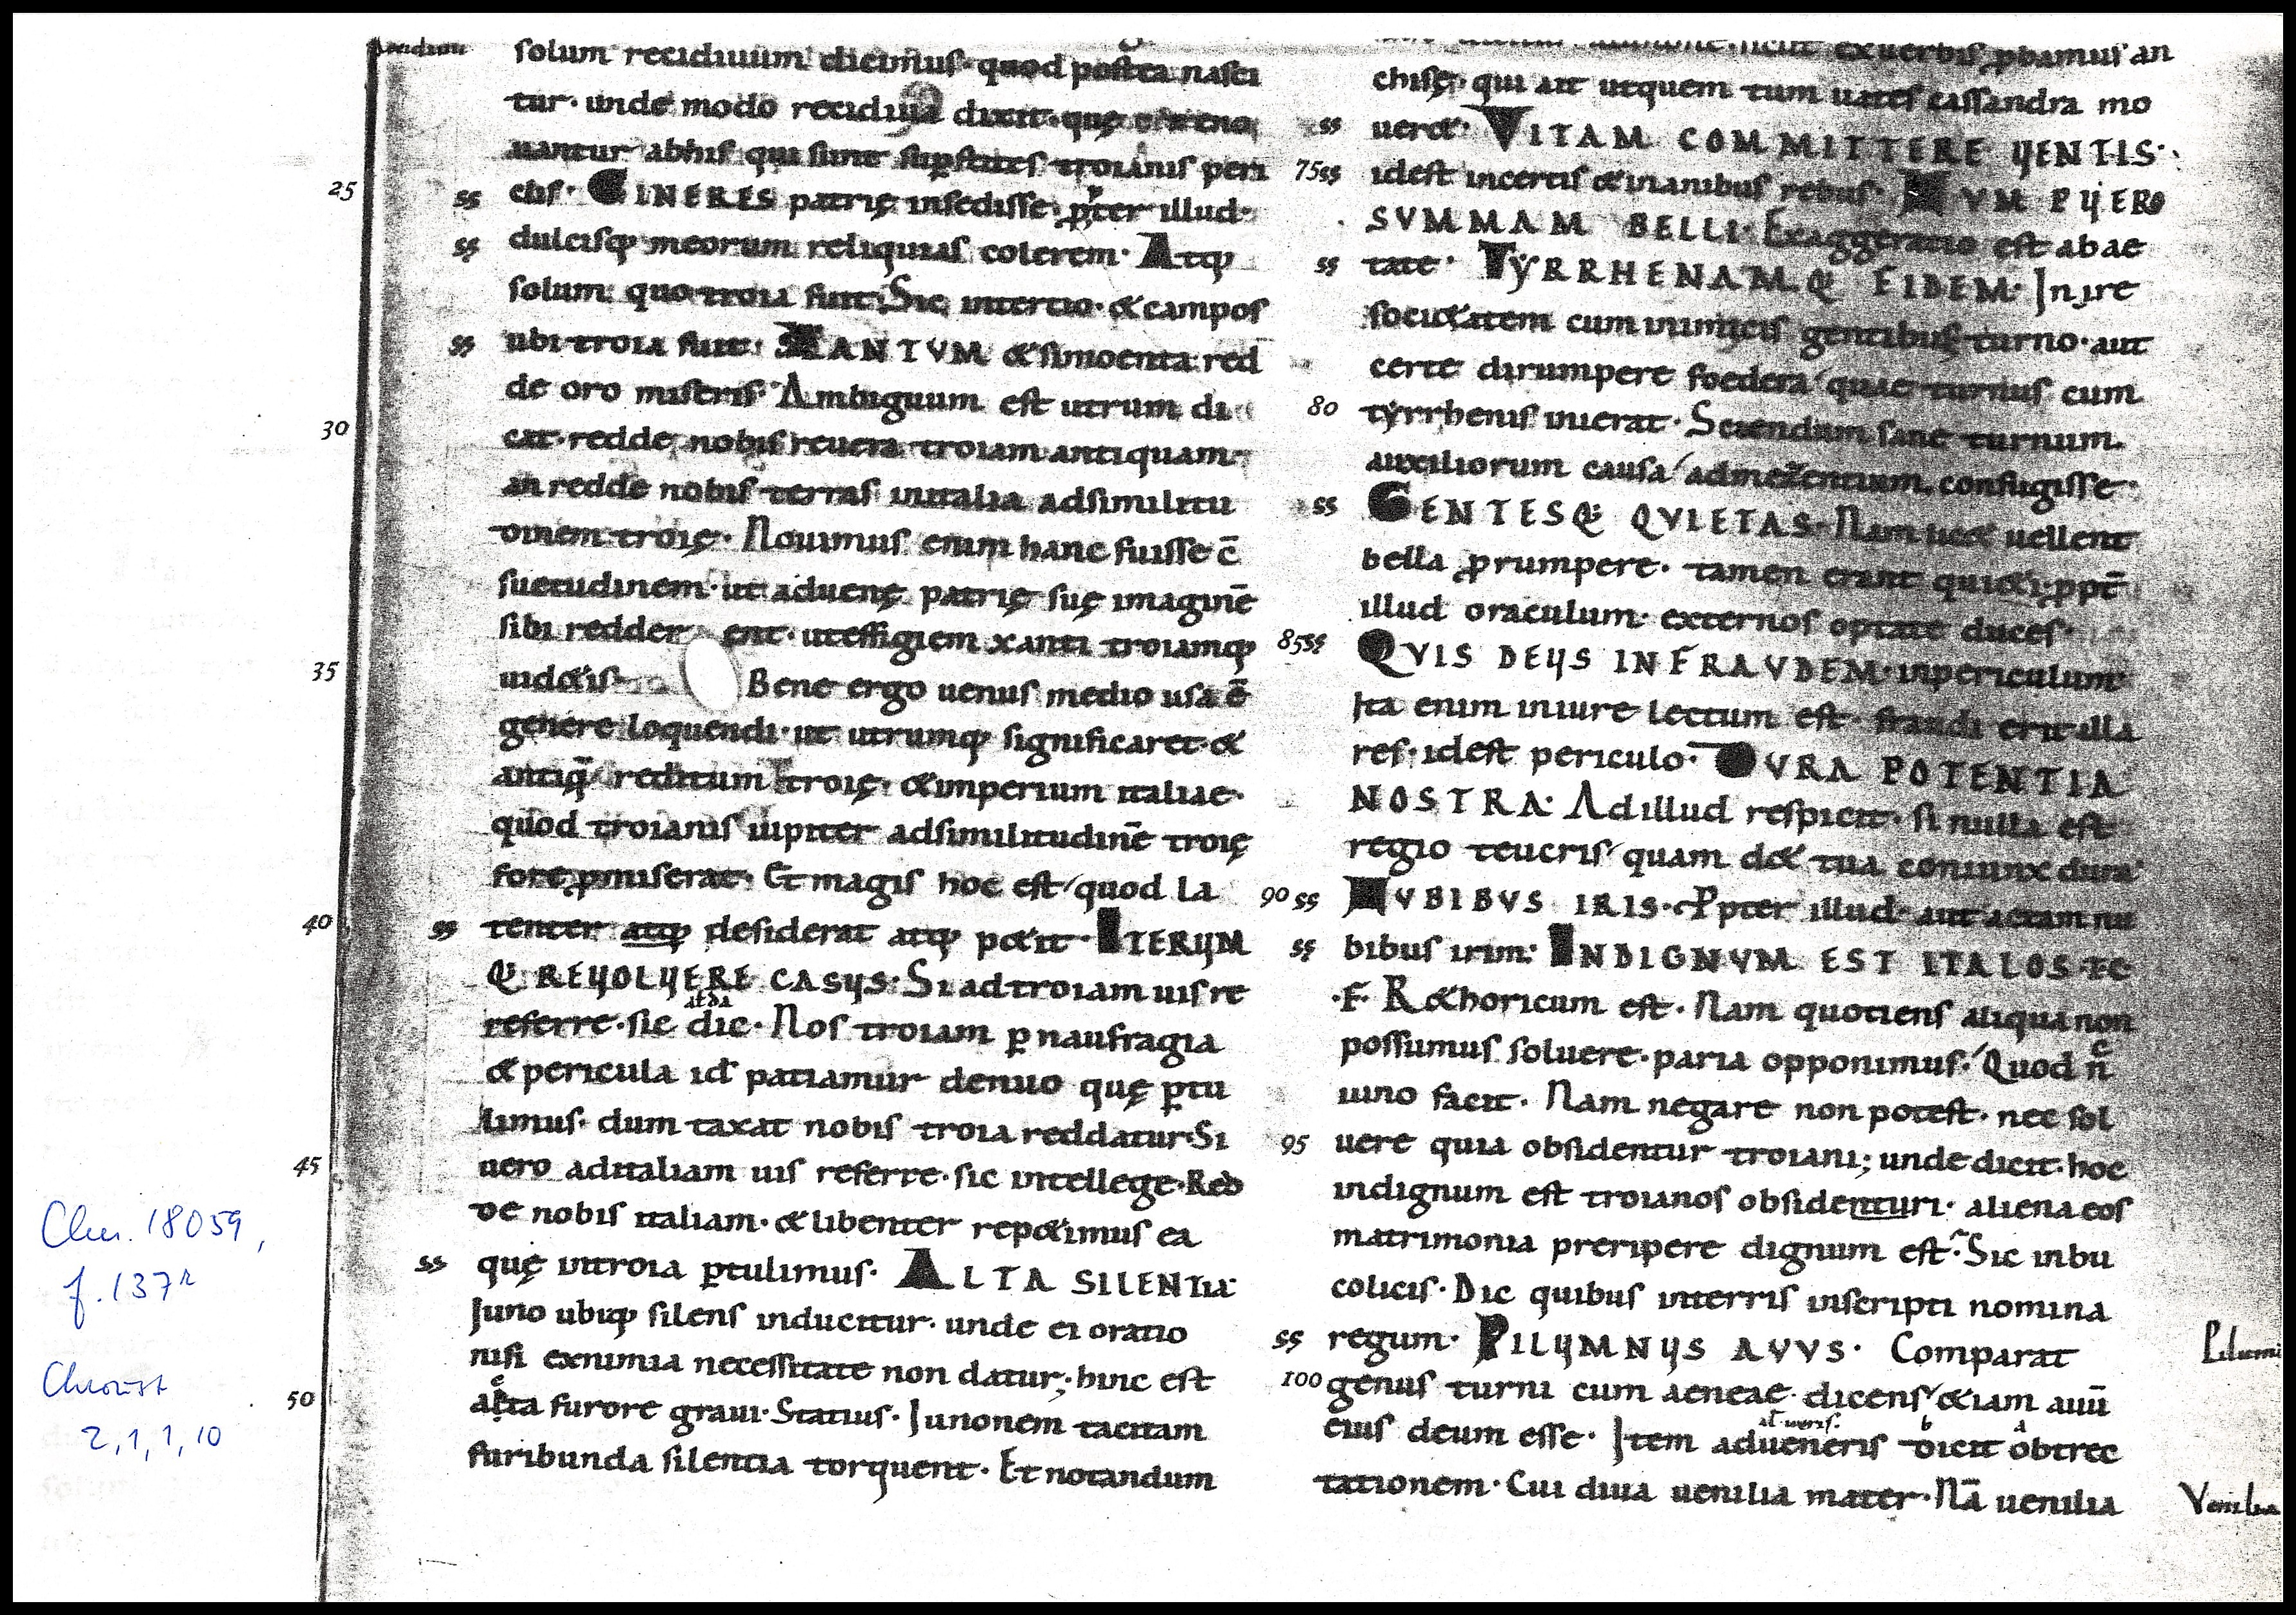 solum recidiuum dicimus· quod postea nasci
tur· unde modo recidiua dixit· quę
nantur abhis qui sunt sup̱stites troianis peri
25
ss
ctis· CINERES patrię insedisse· ꝓpter illud·
ss
dulcisq; meorum reliquias colerem· Atq;
solum quo troia fuit; Sic intertio· & campos
ss
ubi troia fuit· XANTVM & simoenta red
de oro miseris· Ambiguum est utrum di
30
cat· redde nobis reuera troiam antiquam·
an redde nobis terras initalia adsimilitu
dinem troię· Nouimus enim hanc fuisse c̄
suetudinem· ut aduenę patrię suę imaginē
sibi redderent· uteffigiem xanti troiamq;
35
uid&is· Bene ergo uenus medio usa ē
genere loquendi· ut utrumq; significaret· &
antiq̄ reditum troię· & imperium italiae·
quod troianis iupiter adsimilitudinē troię
fore ꝓmiserat· Et magis hoc est quod la
40
ss
tenter atq; desiderat atq; p&it· ITERUM
Q; REUOLUERE CASUS· Si ad troiam uis re
referre· sic dic· Nos troiam ꝑ naufragia
& pericula id patiamur denuo quę ꝑtu
limus· dum taxat nobis troia reddatur· Si
45
uero aditaliam uis referre· sic intellege· Red
de nobis italiam· & libenter rep&imus ea
ss
quę introia ꝑtulimus· ALTA SILENTIA·
Juno ubiq; silens inducitur· unde ei oratio
nisi exnimia necessitate non datur; hinc est
50
acta furore graui· Statius· Junonem tacitam
furibunda silentia torquent· Et notandum
exuerbis ꝓbamus an
chisę· qui ait utquem tum uates cassandra mo
ss
uer&· VITAM COMMITTERE UENTIS·
75 ss
idest incertis & inanibus rebus· NVM PUERO
SVMMAM BELLI· Exaggeratio est abae
ss
tate· TYRRHENAMQ; FIDEM· Inire
soci&atem cum inimicis gentibus turno· aut
certe dirumpere foedera quae turnus cum
80
tyrrhenis inierat· Sciendum sane turnum
auxiliorum causa admezentium confugisse·
ss
GENTESQ; QVIETAS· Nam uel uellent
bella ꝓrumpere· tamen erant qui&i· ꝓpt̄
illud oraculum· externos optate duces·
85 ss
QVIS DEUS INFRAVDEM· inpericulum
Ita enim iniure lectum est· fraudi erit illa
res· idest periculo· DVRA POTENTIA
NOSTRA· Adillud respicit· si nulla est
regio teucris quam d& tua coniunx dura·
90 ss
NVBIBVS IRIS· Ꝓpter illud· aut actam nu
ss
bibus irim· INDIGNVM EST ITALOS· T·C
·F· R&horicum est· Nam quotiens aliqua non
possumus soluere· paria opponimus· Quod n̄c
iuno facit· Nam negare non potest· nec sol
95
uere quia obsidentur troiani; unde dicit· hoc
indignum est troianos obsidenturi· aliena eos
matrimonia preripere dignum est· Sic inbu
colicis· Dic quibus interris inscripti nomina
ss
regum· PILUMNUS AVVS· Comparat
100
genus turni cum aeneae dicens &iam auū
eius deum esse· Item adueneris dicit obtrec
tationem· Cui diua uenilia mater· Nā uenilia
Venilia
Clm. 18059,
f. 137r
Chroust
2, 1, 1, 10